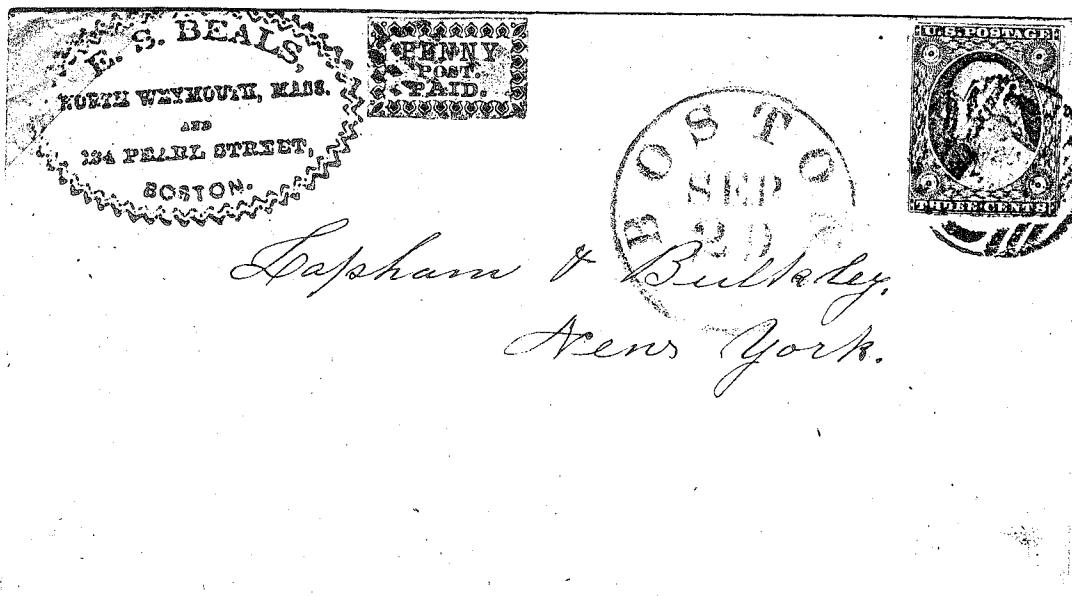 E. S. BEALS,
NORTH WEYMOUTH, MASS.
AND
134 PEARL STREET,
BOSTON.
PENNY
POST.
PAID.
BOSTO
SEP
20
U.S. POSTAGE
THREE CENTS
Lapham & Bulkley,
New York.